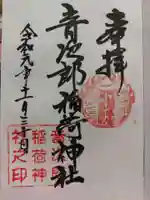 奉拝
音次郎稲荷神社
令和元年十一月三十日
音次郎
稲荷神
社之印